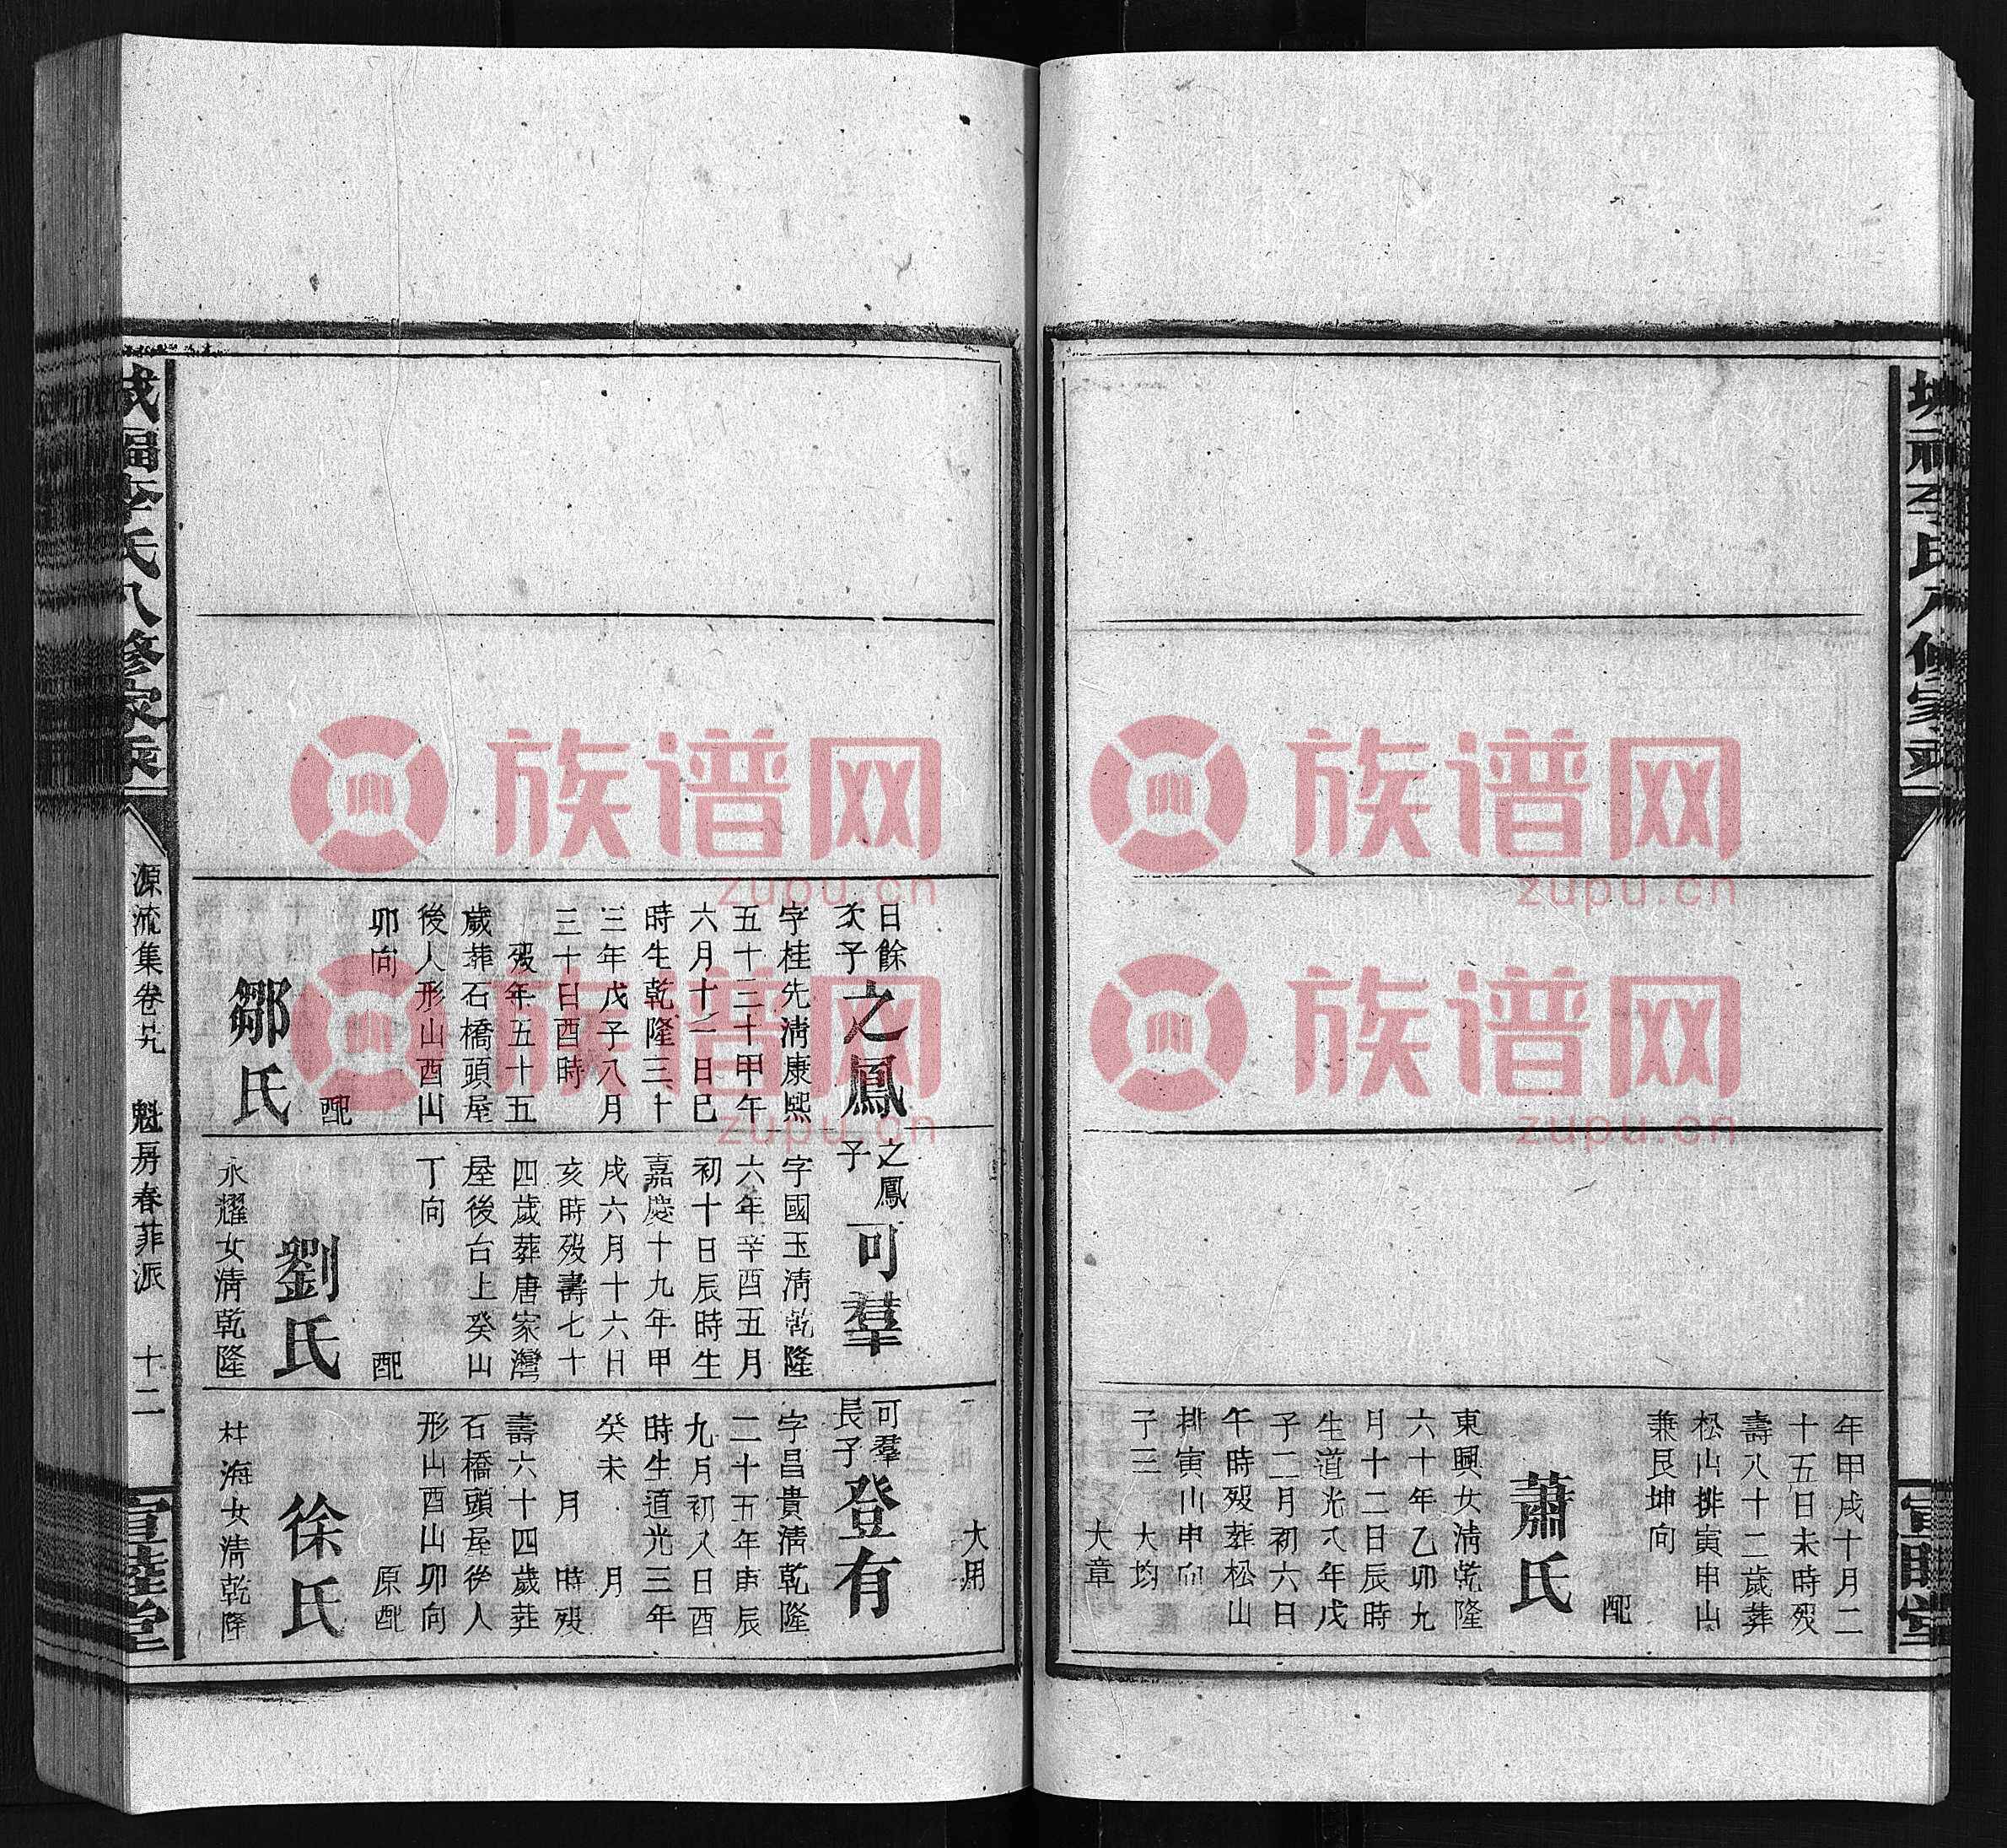 年甲戌十月二
十五日未時歿
壽八十二歲葬
松山排寅申山
兼艮坤向
配
蕭氏
東興女清乾隆
六十年乙卯九
月十二日辰時
生道光八年戊
子二月初六日
午時歿葬松山
排寅山申向
子三 大均
大章
大用
日餘
次子
之鳳
字桂先清康熙
五十三十甲午
六月十二日巳
時生乾隆三十
三年戊子八月
三十日酉時
歿年五十五
歲葬石橋頭屋
後人形山酉山
卯向
配
鄒氏
之鳳
子
可羣
字國玉清乾隆
六年辛酉五月
初十日辰時生
嘉慶十九年甲
戌六月十六日
亥時歿壽七十
四歲葬唐家灣
屋後台上癸山
丁向
配
劉氏
永耀女清乾隆
可羣
長子
登有
字昌貴清乾隆
二十五年庚辰
九月初八日酉
時生道光三年
癸未 月
月 時歿
壽六十四歲葬
石橋頭屋後人
形山酉山卯向
原配
徐氏
林海女清乾隆
李氏八修家乘
源流集卷廿九 魁房春菲派 十二
族谱网
zupu.cn
族谱网
zupu.cn
族谱网
zupu.cn
族谱网
zupu.cn